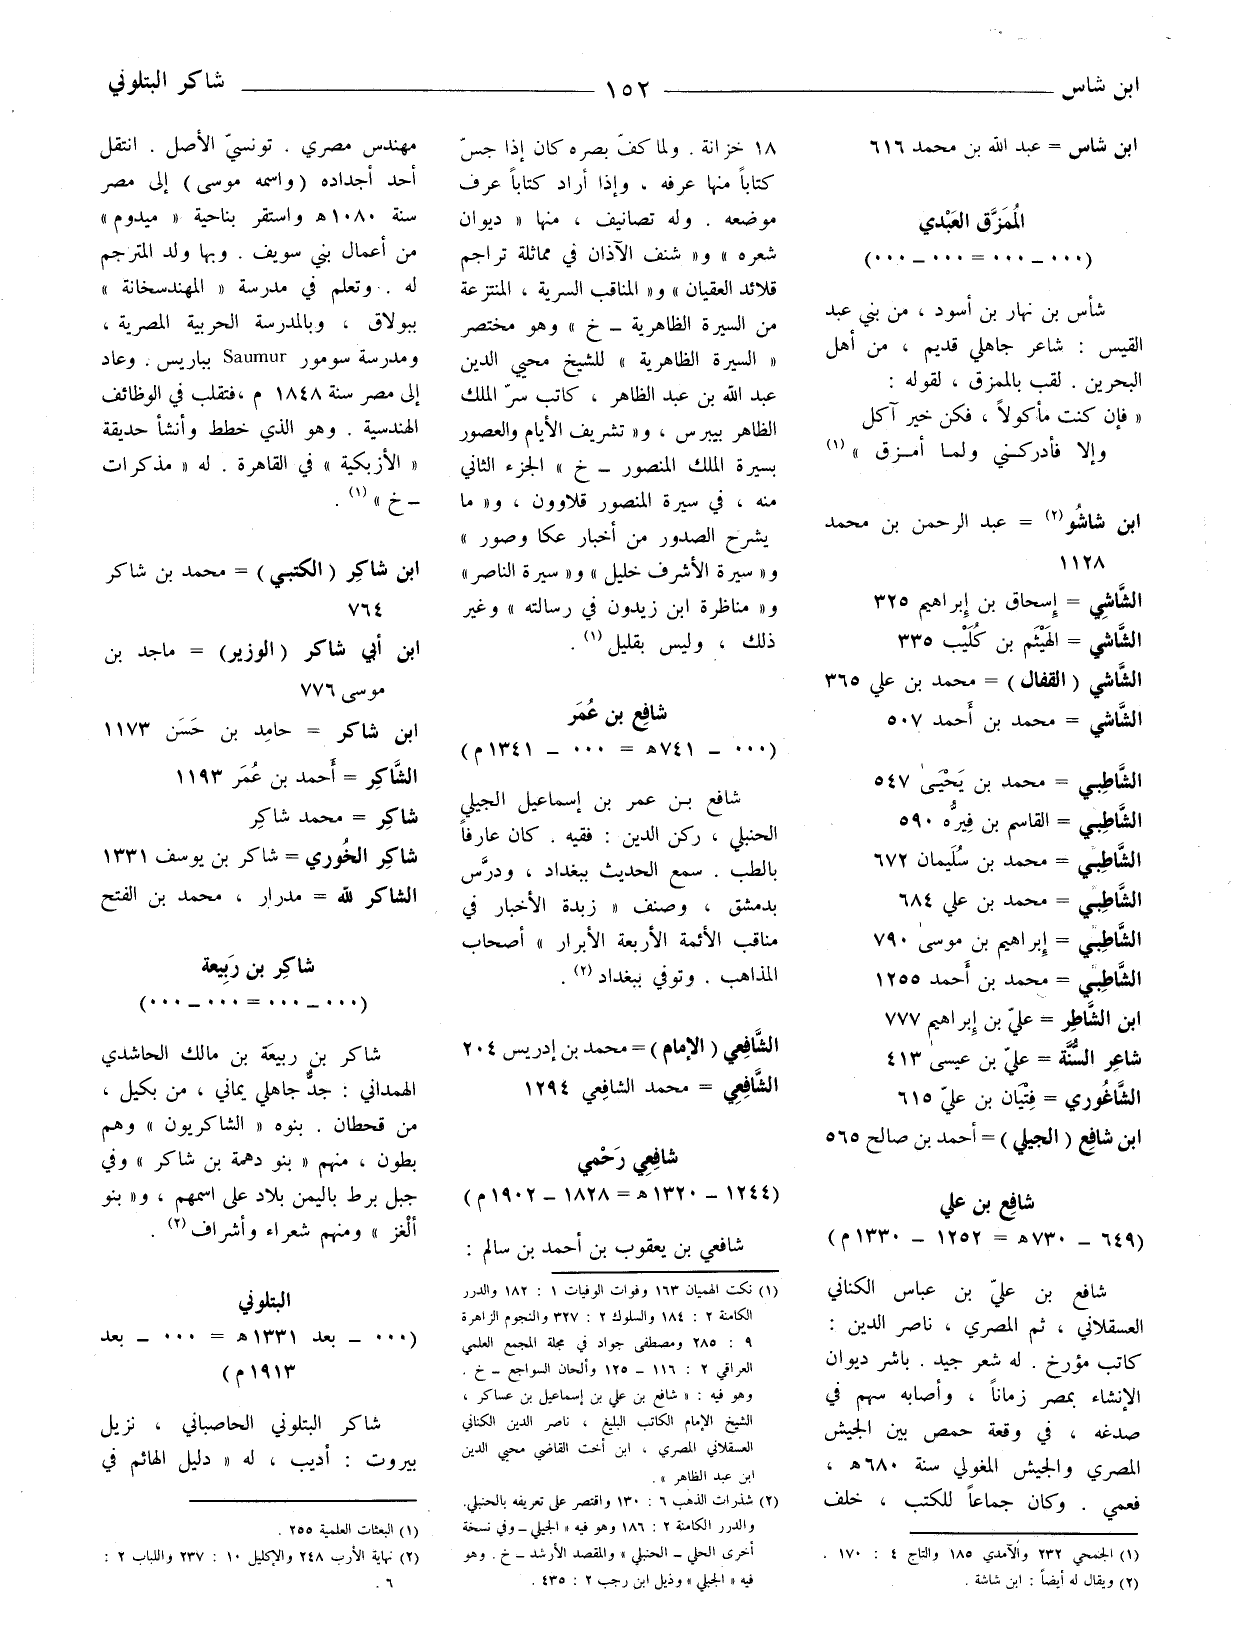 ابن شاس ١٥٢ شاكر البتلوني
ابن شاس = عبد الله بن محمد ٦١٦
المُمَزَّق العَبْدي
(٠٠٠ ــ ٠٠٠ = ٠٠٠ ــ ٠٠٠)
شأس بن نهار بن أسود ، من بني عبد
القيس : شاعر جاهلي قديم ، من أهل
البحرين . لقب بالممزق ، لقوله :
« فإن كنت مأكولاً ، فكن خير آكل
وإلا فأدركـني ولما أمزق » (١)
ابن شاشُو(٢) = عبد الرحمن بن محمد
١١٢٨
الشَّاشي = إسحاق بن إبراهيم ٣٢٥
الشَّاشي = الهَيْثَم بن كُلَيْب ٣٣٥
الشَّاشي ( القفال ) = محمد بن علي ٣٦٥
الشَّاشي = محمد بن أحمد ٥٠٧
الشَّاطِبي = محمد بن يَحْيَىٰ ٥٤٧
الشَّاطِبي = القاسم بن فِيرُّه ٥٩٠
الشَّاطِبي = محمد بن سُلَيمان ٦٧٢
الشَّاطِبي = محمد بن علي ٦٨٤
الشَّاطِبي = إبراهيم بن موسىٰ ٧٩٠
الشَّاطِبي = محمد بن أحمد ١٢٥٥
ابن الشَّاطِر = عليّ بن إبراهيم ٧٧٧
شاعِر السُّنَّة = عليّ بن عيسىٰ ٤١٣
الشَّاغُوري = فِتْيَان بن عليّ ٦١٥
ابن شافِع ( الجيلي ) = أحمد بن صالح ٥٦٥
شافِع بن علي
(٦٤٩ ــ ٧٣٠ هـ = ١٢٥٢ ــ ١٣٣٠ م)
شافع بن عليّ بن عباس الكناني
العسقلاني ، ثم المصري ، ناصر الدين :
كاتب مؤرخ . له شعر جيد . باشر ديوان
الإنشاء بمصر زماناً ، وأصابه سهم في
صدغه ، في وقعة حمص بين الجيش
المصري والجيش المغولي سنة ٦٨٠ هـ ،
فعمي . وكان جماعاً للكتب ، خلف
(١) الجمحي ٢٣٢ والآمدي ١٨٥ والتاج ٤ : ١٧٠ .
(٢) ويقال له أيضاً : ابن شاشة .
١٨ خزانة . ولما كفّ بصره كان إذا جسّ
كتاباً منها عرفه ، وإذا أراد كتاباً عرف
موضعه . وله تصانيف ، منها « ديوان
شعره » و« شنف الآذان في مماثلة تراجم
قلائد العقيان » و« المناقب السرية ، المنتزعة
من السيرة الظاهرية ــ خ » وهو مختصر
« السيرة الظاهرية » للشيخ محيي الدين
عبد الله بن عبد الظاهر ، كاتب سرّ الملك
الظاهر بيبرس ، و« تشريف الأيام والعصور
بسيرة الملك المنصور ــ خ » الجزء الثاني
منه ، في سيرة المنصور قلاوون ، و« ما
يشرح الصدور من أخبار عكا وصور »
و« سيرة الأشرف خليل » و« سيرة الناصر»
و« مناظرة ابن زيدون في رسالته » وغير
ذلك ، وليس بقليل (١) .
شافِع بن عُمَر
(٠٠٠ ــ ٧٤١ هـ = ٠٠٠ ــ ١٣٤١ م)
شافع بـن عمر بن إسماعيل الجيلي
الحنبلي ، ركن الدين : فقيه . كان عارفاً
بالطب . سمع الحديث ببغداد ، ودرَّس
بدمشق ، وصنف « زبدة الأخبار في
مناقب الأئمة الأربعة الأبرار » أصحاب
المذاهب . وتوفي ببغداد (٢) .
الشَّافِعي ( الإمام ) = محمد بن إدريس ٢٠٤
الشَّافِعِي = محمد الشافِعي ١٢٩٤
شافِعِي رَحْمي
(١٢٤٤ ــ ١٣٢٠ هـ = ١٨٢٨ ــ ١٩٠٢ م)
شافعي بن يعقوب بن أحمد بن سالم :
(١) نكت الهميان ١٦٣ وفوات الوفيات ١ : ١٨٢ والدرر
الكامنة ٢ : ١٨٤ والسلوك ٢ : ٣٢٧ والنجوم الزاهرة
٩ : ٢٨٥ ومصطفى جواد في مجلة المجمع العلمي
العراقي ٢ : ١١٦ ــ ١٢٥ وألحان السواجع ــ خ .
وهو فيه : « شافع بن علي بن إسماعيل بن عساكر ،
الشيخ الإمام الكاتب البليغ ، ناصر الدين الكناني
العسقلاني المصري ، ابن أخت القاضي محيي الدين
ابن عبد الظاهر » .
(٢) شذرات الذهب ٦ : ١٣٠ واقتصر على تعريفه بالحنبلي.
والدرر الكامنة ٢ : ١٨٦ وهو فيه « الجيلي ــ وفي نسخة
أخرى الحلي ــ الحنبلي » والمقصد الأرشد ــ خ . وهو
فيه « الجبلي » وذيل ابن رجب ٢ : ٤٣٥ .
مهندس مصري . تونسيّ الأصل . انتقل
أحد أجداده ( واسمه موسى ) إلى مصر
سنة ١٠٨٠ هـ واستقر بناحية « ميدوم »
من أعمال بني سويف . وبها ولد المترجم
له . وتعلم في مدرسة « المهندسخانة »
ببولاق ، وبالمدرسة الحربية المصرية ،
ومدرسة سومور Saumur بباريس . وعاد
إلى مصر سنة ١٨٤٨ م ،فتقلب في الوظائف
الهندسية . وهو الذي خطط وأنشأ حديقة
« الأزبكية » في القاهرة . له « مذكرات
ــ خ » (١) .
ابن شاكِر ( الكتبي ) = محمد بن شاكر
٧٦٤
ابن أبي شاكر ( الوزير ) = ماجد بن
موسى ٧٧٦
ابن شاكر = حامِد بن حَسَن ١١٧٣
الشَّاكِر = أَحمد بن عُمَر ١١٩٣
شاكِر = محمد شاكِر
شاكِر الخُوري = شاكر بن يوسف ١٣٣١
الشاكر لله = مدرار ، محمد بن الفتح
شاكِر بن رَبِيعة
(٠٠٠ ــ ٠٠٠ = ٠٠٠ ــ ٠٠٠)
شاكر بن ربيعَة بن مالك الحاشدي
الهمداني : جدٌّ جاهلي يماني ، من بكيل ،
من قحطان . بنوه « الشاكريون » وهم
بطون ، منهم « بنو دهمة بن شاكر » وفي
جبل برط باليمن بلاد على اسمهم ، و« بنو
ألْغز » ومنهم شعراء وأشراف (٢) .
البتلوني
(٠٠٠ ــ بعد ١٣٣١ هـ = ٠٠٠ ــ بعد
١٩١٣ م)
شاكر البتلوني الحاصباني ، نزيل
بيروت : أديب ، له « دليل الهائم في
(١) البعثات العلمية ٢٥٥ .
(٢) نهاية الأرب ٢٤٨ والإكليل ١٠ : ٢٣٧ واللباب ٢ :
٦ .